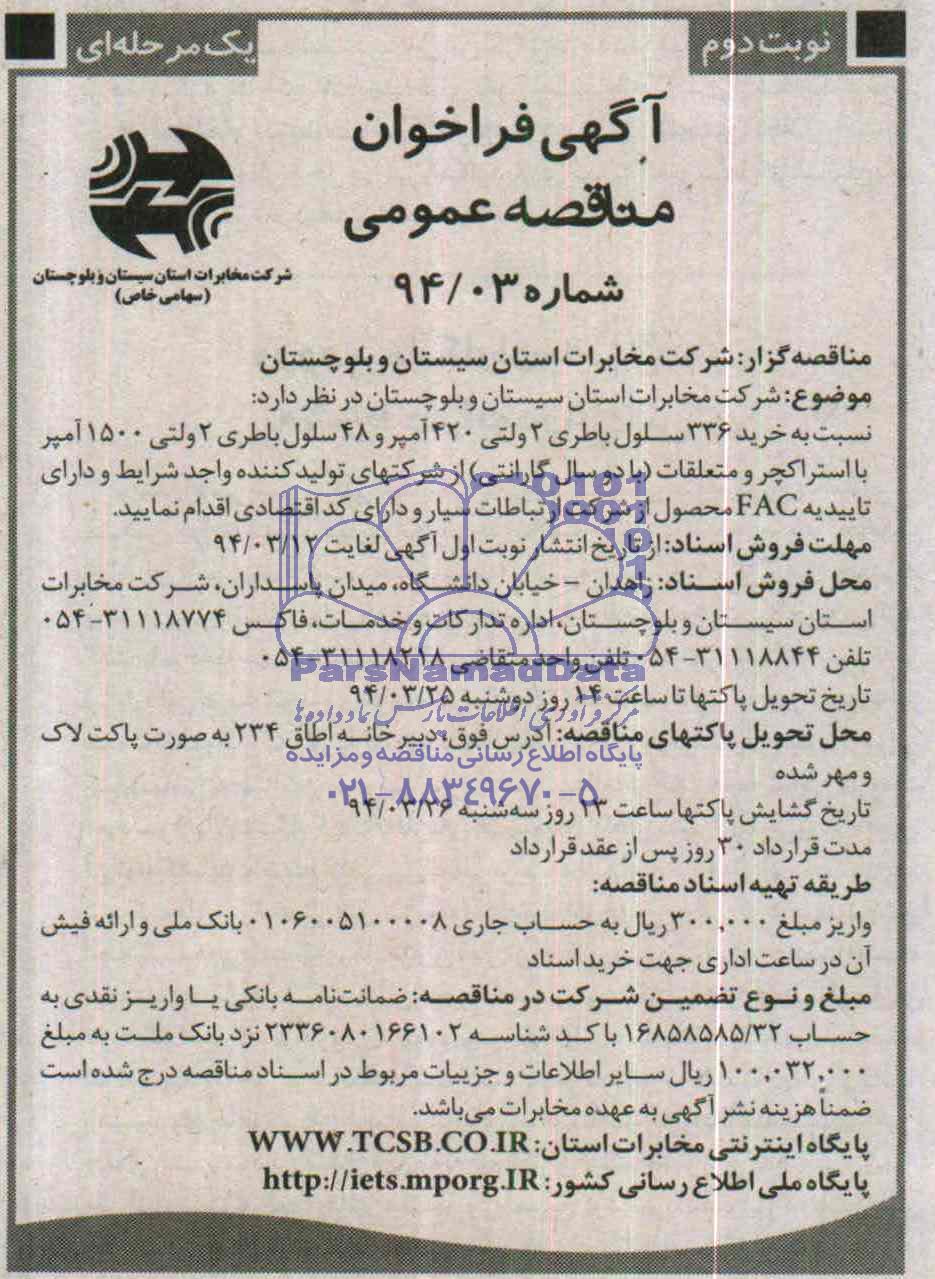 نوبت دوم
یک مرحله‌ای
آگهی فراخوان
مناقصه عمومی
شماره ۹۴/۰۳
شرکت مخابرات استان سیستان و بلوچستان
(سهامی خاص)
مناقصه گزار: شرکت مخابرات استان سیستان و بلوچستان
موضوع: شرکت مخابرات استان سیستان و بلوچستان در نظر دارد:
نسبت به خرید ۳۳۶ سلول باطری ۲ ولتی ۴۲۰ آمپر و ۴۸ سلول باطری ۲ ولتی ۱۵۰۰ آمپر
با استراکچر و متعلقات (با دو سال گارانتی) از شرکتهای تولیدکننده واجد شرایط و دارای
تاییدیه FAC محصول از شرکت ارتباطات سیار و دارای کد اقتصادی اقدام نمایید.
مهلت فروش اسناد: از تاریخ انتشار نوبت اول آگهی لغایت ۹۴/۰۳/۱۲
محل فروش اسناد: زاهدان - خیابان دانشگاه، میدان پاسداران، شرکت مخابرات
استان سیستان و بلوچستان، اداره تدارکات و خدمات، فاکس ۳۱۱۱۸۷۷۴-۰۵۴
تلفن ۳۱۱۱۸۸۴۴-۰۵۴ تلفن واحد متقاضی ۳۱۱۱۸۲۱۸-۰۵۴
ParsNamadData
تاریخ تحویل پاکتها تا ساعت ۱۴ روز دوشنبه ۹۴/۰۳/۲۵
محل تحویل پاکتهای مناقصه: آدرس فوق، دبیرخانه اطاق ۲۳۴ به صورت پاکت لاک
پایگاه اطلاع رسانی مناقصه و مزایده
و مهر شده
۰۲۱-۸۸۳۴۹۶۷۰-۵
تاریخ گشایش پاکتها ساعت ۱۳ روز سه‌شنبه ۹۴/۰۳/۲۶
مدت قرارداد ۳۰ روز پس از عقد قرارداد
طریقه تهیه اسناد مناقصه:
واریز مبلغ ۳۰۰,۰۰۰ ریال به حساب جاری ۰۱۰۶۰۰۵۱۰۰۰۰۸ بانک ملی و ارائه فیش
آن در ساعت اداری جهت خرید اسناد
مبلغ و نوع تضمین شرکت در مناقصه: ضمانت‌نامه بانکی یا واریز نقدی به
حساب ۱۶۸۵۸۵۸۵/۳۲ با کد شناسه ۲۳۳۶۰۸۰۱۶۶۱۰۲ نزد بانک ملت به مبلغ
۱۰۰,۰۳۲,۰۰۰ ریال سایر اطلاعات و جزییات مربوط در اسناد مناقصه درج شده است
ضمناً هزینه نشر آگهی به عهده مخابرات می‌باشد.
پایگاه اینترنتی مخابرات استان: WWW.TCSB.CO.IR
پایگاه ملی اطلاع رسانی کشور: http://iets.mporg.IR